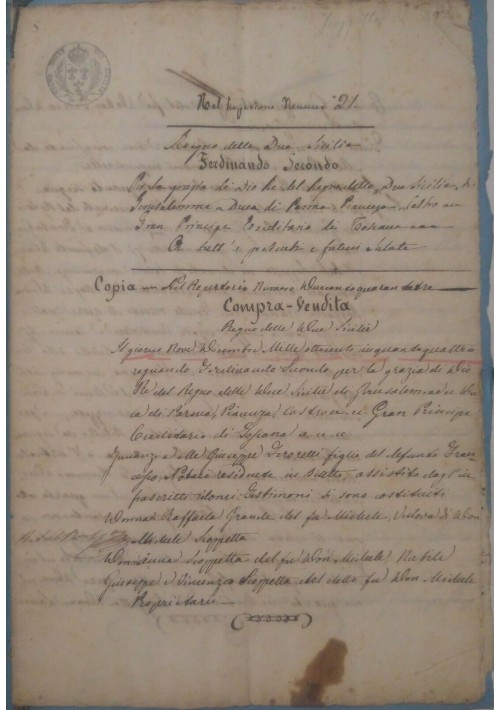 Nel repertorio Numero 21.
Regno delle Due Sicilie
Ferdinando Secondo
Per la grazia di Dio Re del Regno delle Due Sicilie, di
Gerusalemme Duca di Parma Piacenza Castro
Gran Principe Ereditario di Toscana
A tutt'i presenti e futuri Salute
Copia Nel Repertorio Numero Duecentoquarantatre
Compra-Vendita
Regno delle Due Sicilie
Il giorno Nove Dicembre Mille ottocento cinquantaquattro
regnando Ferdinando Secondo per la grazia di Dio
Re del Regno delle Due Sicilie di Gerusalemme Du
ca di Parma, Piacenza, Castro Gran Principe
Ereditario di Toscana
Innanzi a Me Giuseppe figlio del defunto Fran
cesco, Notaro residente in assistito dagl'in
frascritti idonei testimoni si sono costituiti
Donna Raffaela Grande del fu Michele, Vedova di Don
Michele Scoppetta
Donn'Anna Scoppetta del fu Don Michele Nubile
Giuseppe e Vincenzo Scoppetta del detto fu Don Michele
Proprietarii